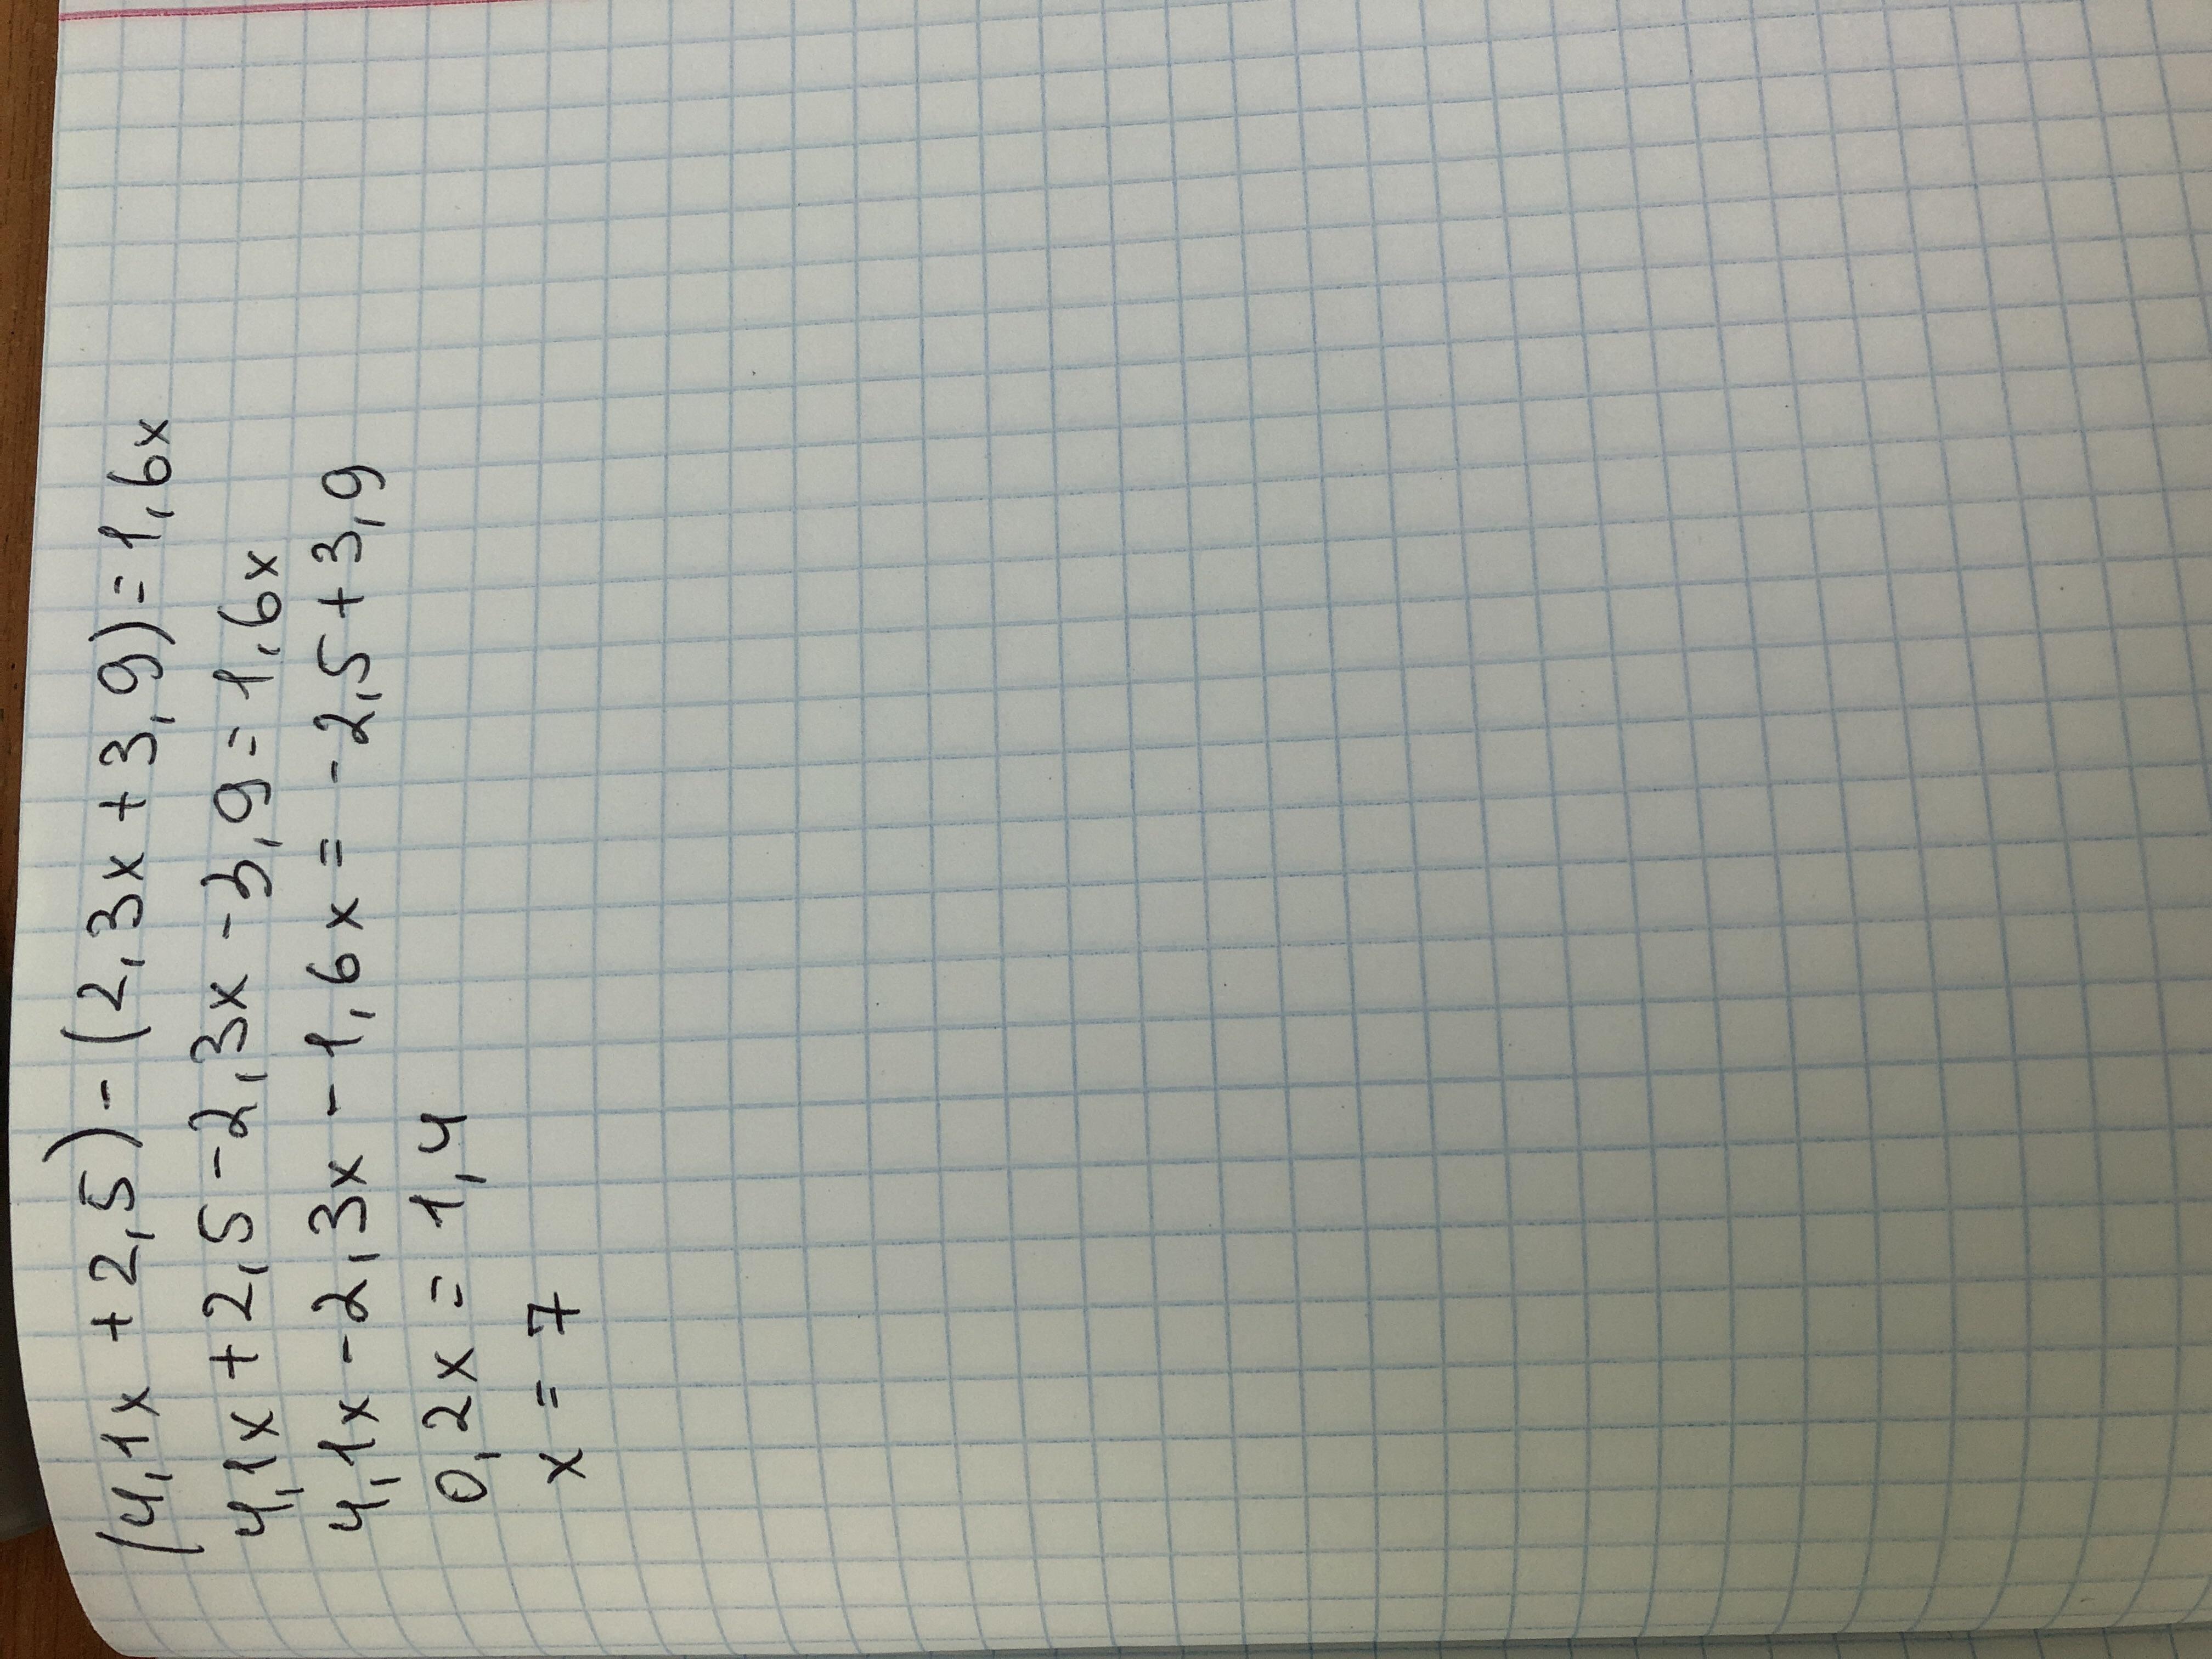 (4,1x + 2,5) - (2,3x + 3,9) = 1,6x
4,1x + 2,5 - 2,3x - 3,9 = 1,6x
4,1x - 2,3x - 1,6x = -2,5 + 3,9
0,2x = 1,4
x = 7